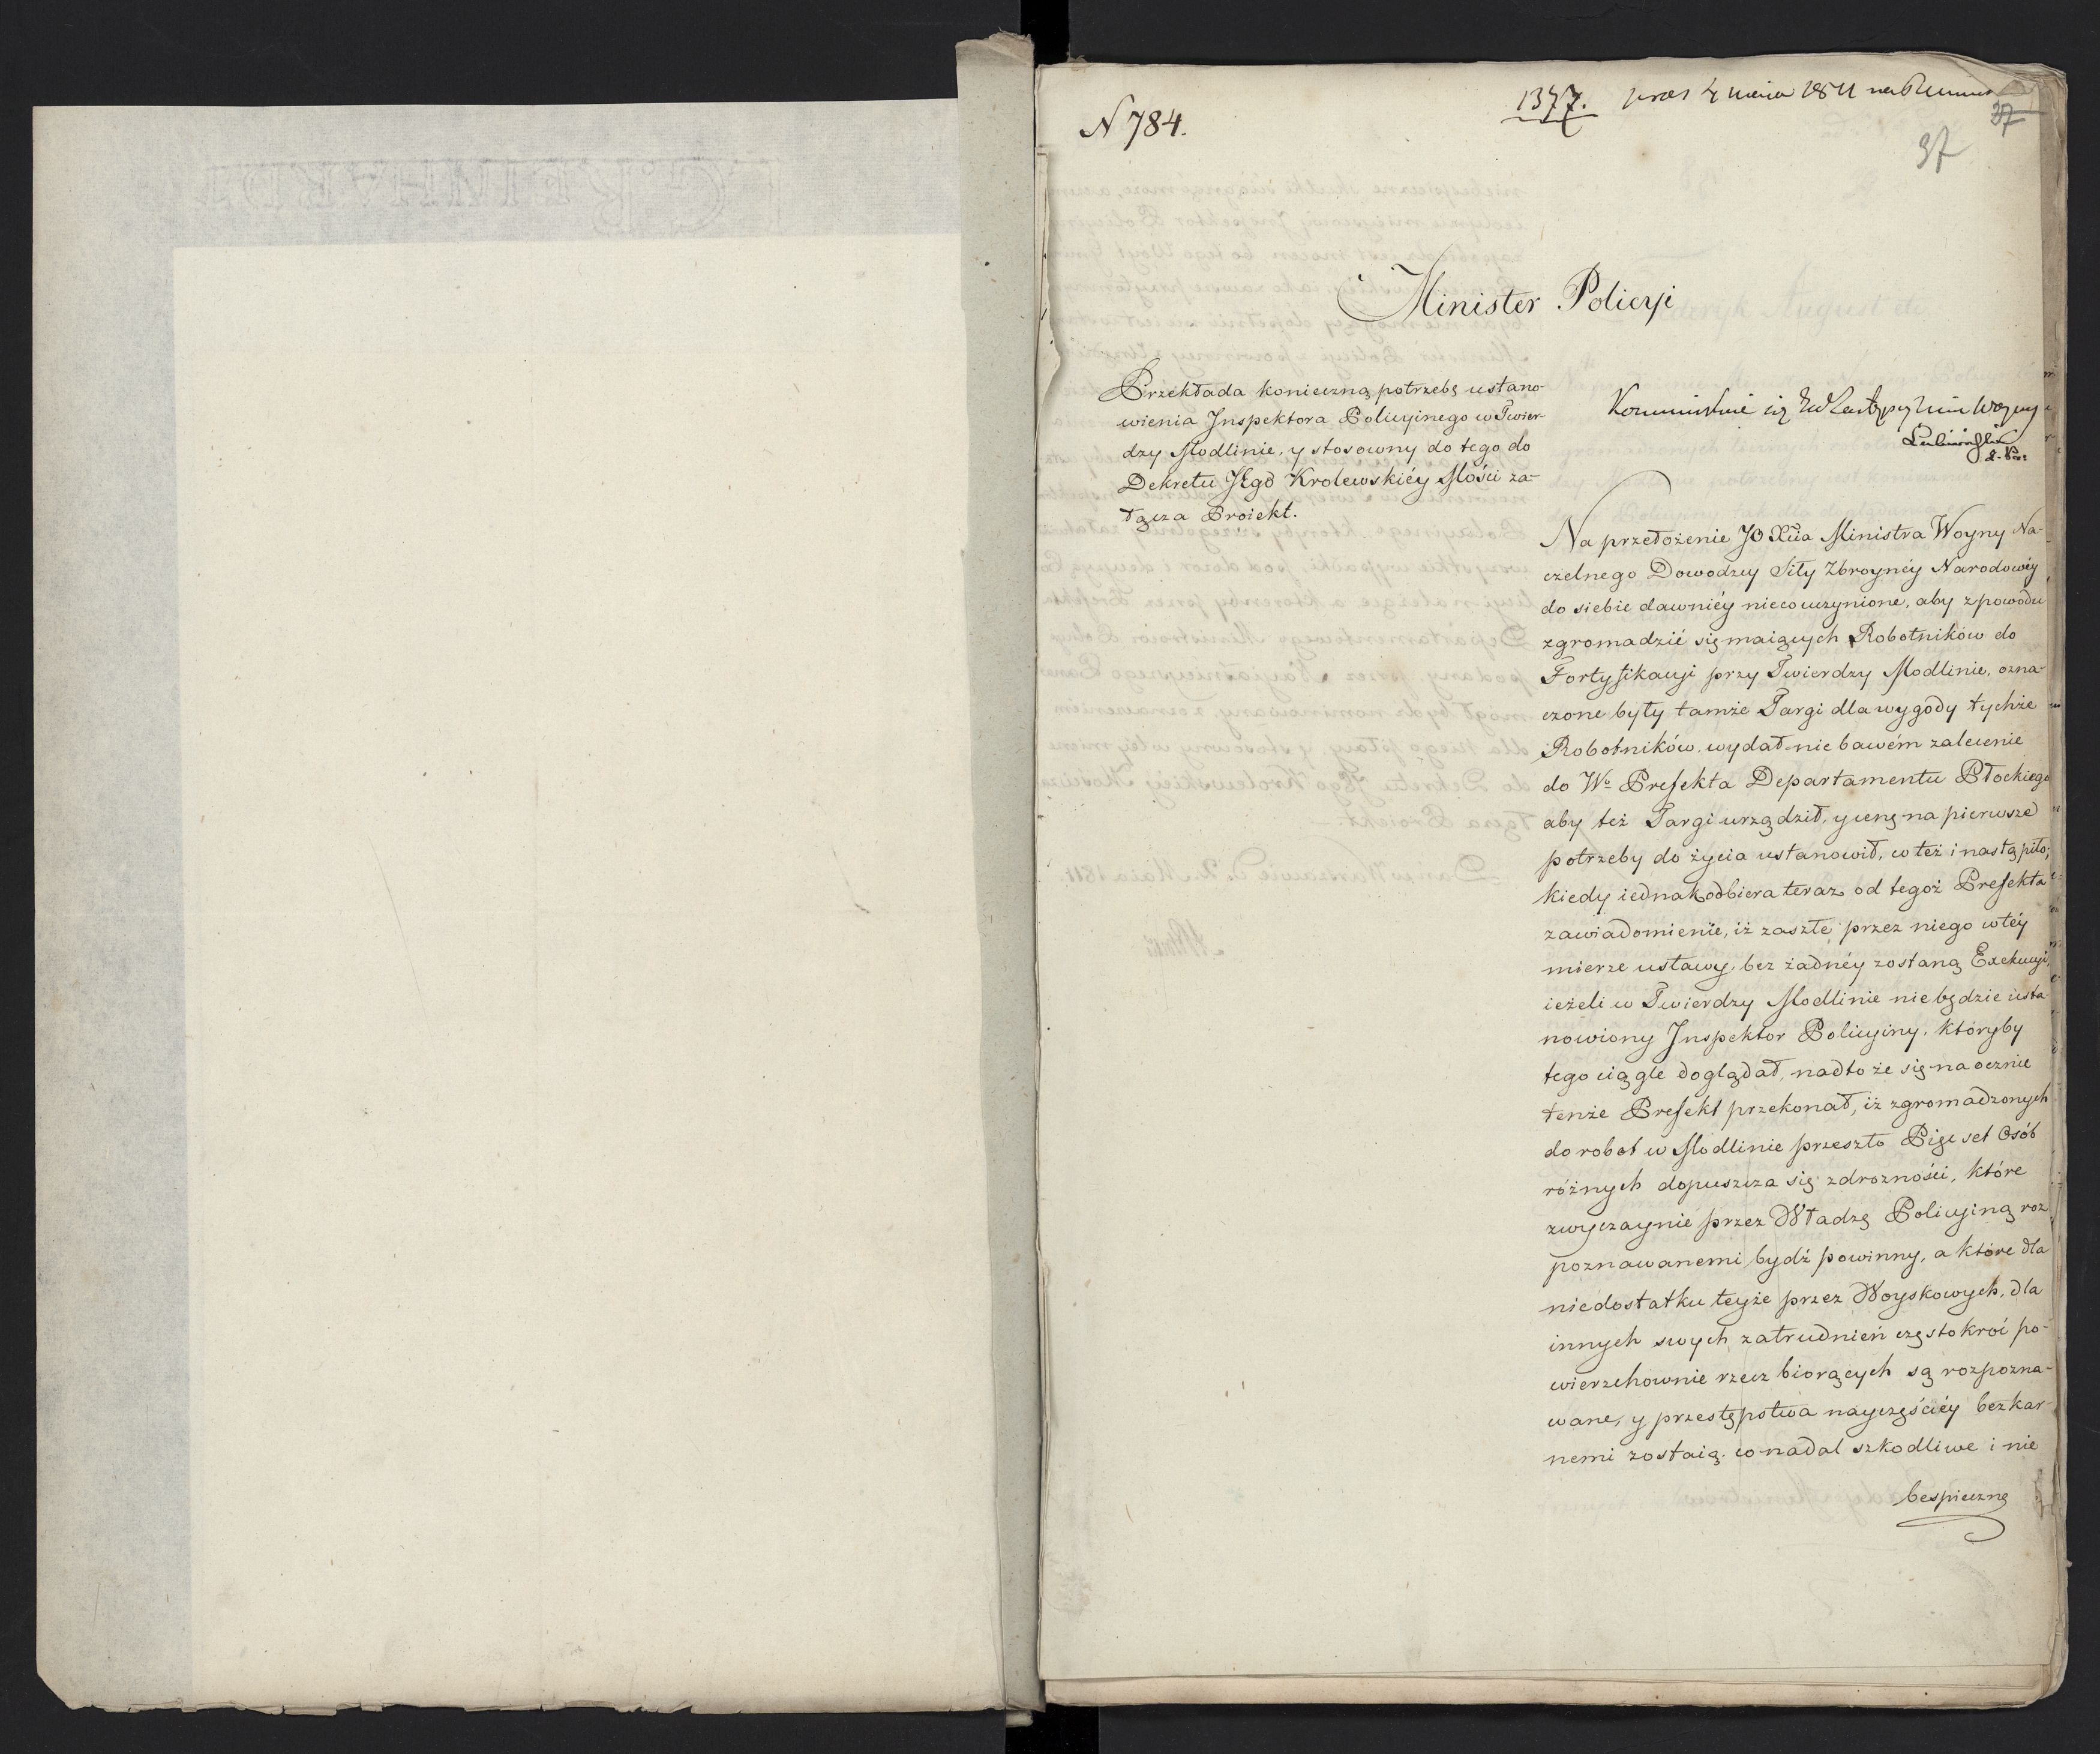 N 784.
1377. praes 4 maia 1811
37
37
Minister Policyi
Przekłada konieczną potrzebę ustano-
wienia Jnspektora Policyinego w Twier-
dzy Modlinie, y stosowny do tego do
Dekretu JKgo Krolewskiéy Mości za-
łącza Proiekt.
Na przełożenie JO Xcia Ministra Woyny Na-
czelnego Dowodzcy Siły Zbroynéy Narodowéy
do siebie dawniéy nieco uczynione, aby z powodu
zgromadzić się maiących Robotników do
Fortyfikacyi przy Twierdzy Modlinie, ozna-
czone były tamże Targi dla wygody tychże
Robotników. wydał nie bawém zalecenie
do Wo Prefekta Departamentu Płockiego
aby też Targi urządził, y cenę na pierwsze
potrzeby do życia ustanowił, co też i nastąpiło;
kiedy iednak odbiera teraz od tegoż Prefekta
zawiadomienie, iż zaszłe przez niego w téy
mierze ustawy, bez żadnéy zostaną Exekucyi,
ieżeli w Twierdzy Modlinie nie będzie usta
nowiony Jnspektor Policyiny, któryby
tego ciągle doglądał, nadto że się naocznie
tenże Prefekt przekonał, iż zgromadzonych
do robot w Modlinie przeszło Pięc set Osób
różnych dopuszcza się zdrozności, które
zwyczaynie przez Władzę Policyiną roz
poznawanemi bydź powinny, a które dla
niedostatku teyże przez Woyskowych, dla
innych swych zatrudnień częstokroć po-
wierzchownie rzecz biorących są rozpozna-
wane, y przestępstwa nayczęściéy bezkar-
nemi zostaią. co nadal szkodliwe i nie
bespieczne